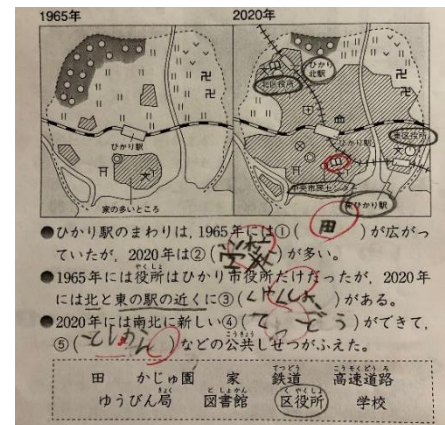 1965年
2020年
ひかり駅
家の多いところ
北区役所
ひかり北駅
ひかり駅
東区役所
中央市民センター
東ひかり駅
●ひかり駅のまわりは,1965年には①( 田 )が広がっ
ていたが,2020年は②( )が多い。
●1965年には役所はひかり市役所だけだったが,2020年
には北と東の駅の近くに③(くやくしょ)がある。
●2020年には南北に新しい④( )ができて,
⑤( )などの公共しせつがふえた。
田 かじゅ園 家 鉄道 高速道路
ゆうびん局 図書館 区役所 学校